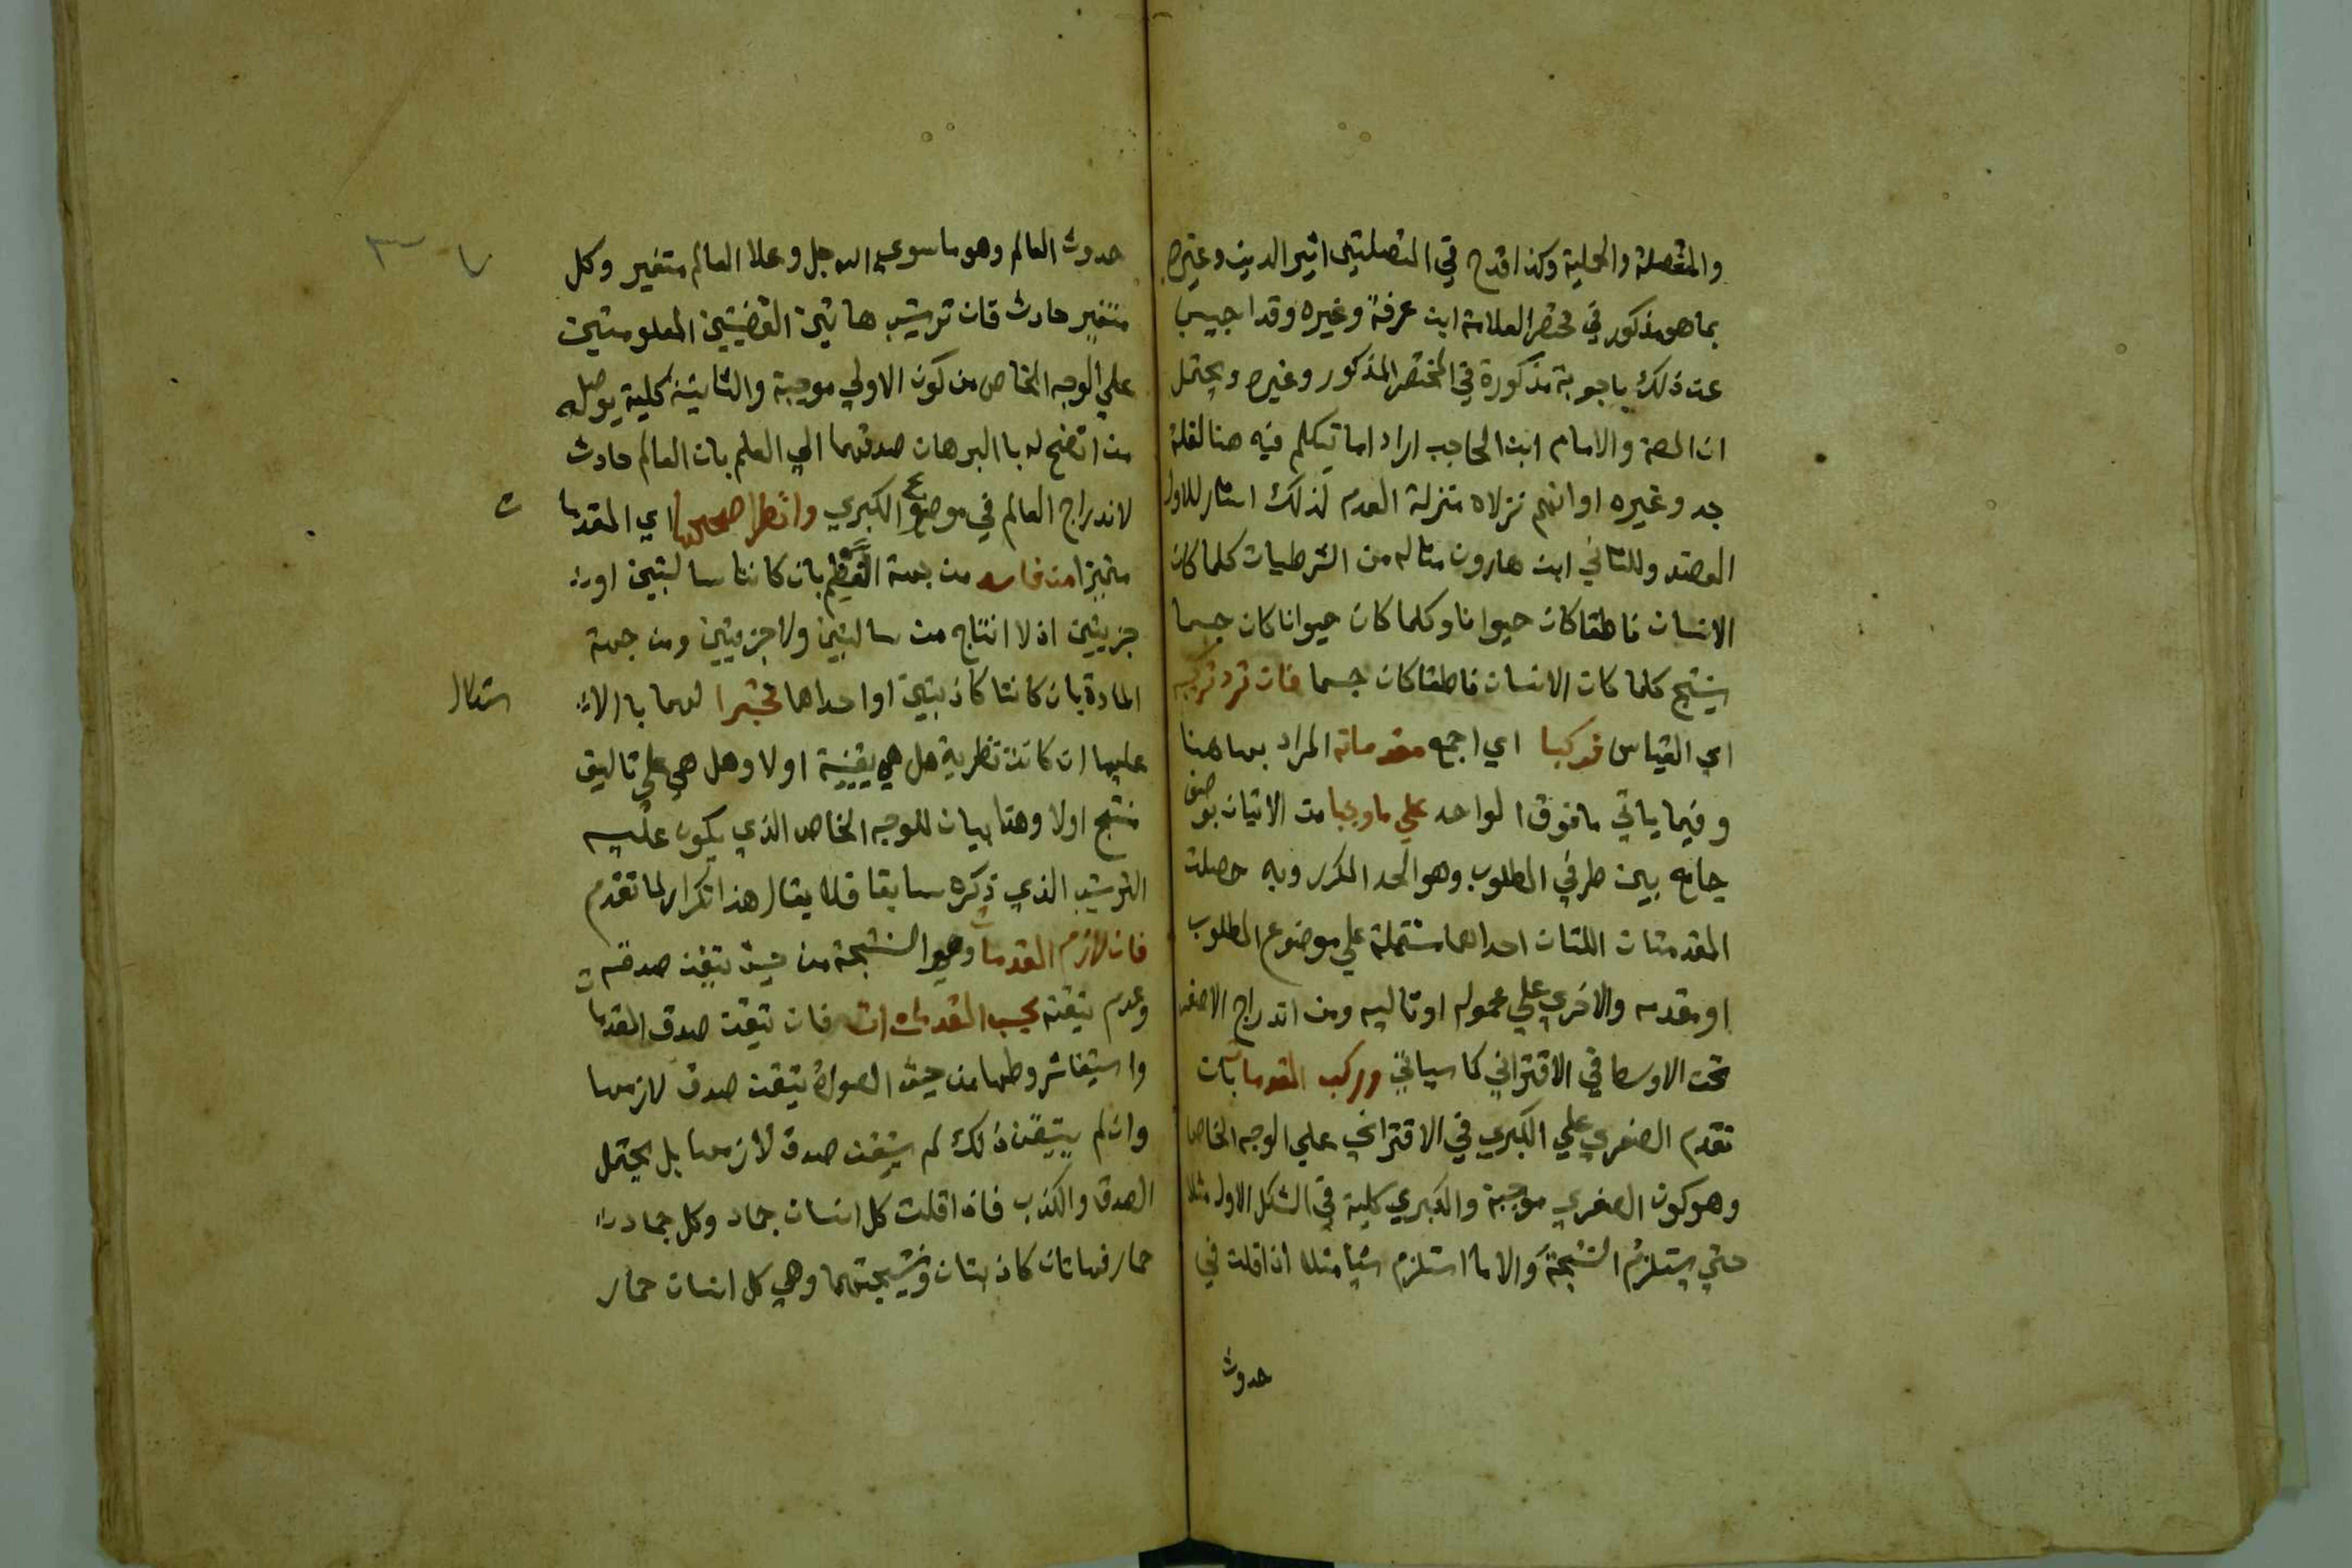 والمنفصلة والحملية وكذا قدح في المتصلتين اثير الدين وغيره
بما هو مذكور في مختصر العلامة ابن عرفة وغيره وقد اجيب
عن ذلك باجوبة مذكورة في المختصر المذكور وغيره ويحتمل
ان المصة والامام ابن الحاجب ارادا ما تيكلم فيه هنا لقلة
جد وغيره او انهم نزلاه منزلة العدم لذلك اشار للاول
العضد وللثاني ابن هارون مثاله من الشرطيات كلما كان
الانسان ناطقا كان حيوانا وكلما كان حيوانا كان جسما
ينتج كلما كان الانسان ناطقا كان جسما فان ترد تركيبه
اي القياس فركبا اي اجمع مقدماته المراد بها هنا
وفيما ياتي ما فوق الواحد علي ما وجبا من الاتيان بوصف
جامع بين طرفي المطلوب وهو الحد المكرر وبه حصلت
المقدمتان اللتان احداهما مشتملة علي موضوع المطلوب
او مقدمه والاخري علي محموله او تاليه ومن اندراج الاصغر
تحت الاوسط في الاقتراني كما سياتي ورتب المقدمات بان
تقدم الصغري علي الكبري في الاقتراني علي الوجه الخاص
وهو كون الصغري موجبة والكبري كلية في الشكل الاول مثلا
حتي يستلزم النتيجة والا ما استلزم شيا مثلا اذا قلت في
حدوث
حدوث العالم وهو ما سوي الله جل وعلا العالم متغير وكل
متغير حادث فان ترتيب هاتين القضيتين المعلومتين
علي الوجه الخاص من كون الاولي موجبة والثانية كلية يوصل
من اتضح له با البرهان صدقهما الي العلم بان العالم حادث
لاندراج العالم في موضوع الكبري وانظر صحيحها اي المقدمات
متميزا من فاسد من جهة النظم بان كانتا سالبتين او
جزيتين اذ لا انتاج من سالبتين ولا جزيتين ومن جهة
المادة بان كانتا كاذبتين او احداهما مختبرا لهما با الاستدلال
عليها ان كانت نظرية هل هي يقينية او لا وهل هي علي تاليف
منتج اولا وهنا بيان للوجه الخاص الذي يكون عليه
الترتيب الذي ذكره سابقا فلا يقال هذا تكرار لما تقدم
فان لازم المقدمات وهو النتيجة من حيث تيقن صدقه
وعدم تيقنه بحسب المقدمات ات فان تيقن صدق المقدمات
واستيفا شروطها من حيث الصورة تيقن صدق لازمها
وان لم يتيقن ذلك لم يتيقن صدق لازمها بل يحتمل
الصدق والكذب فاذا قلت كل انسان جماد وكل جماد
حمار فهاتان كاذبتان ونتيجتهما وهي كل انسان حمار